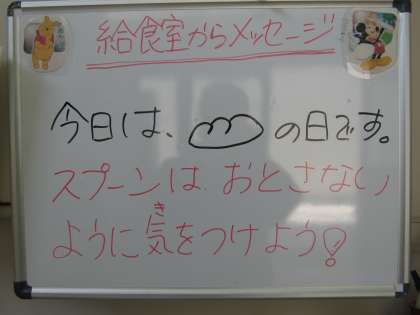 給食室からメッセージ
今日は、の日です。
スプーンは おとさない
ように気をつけよう!
き